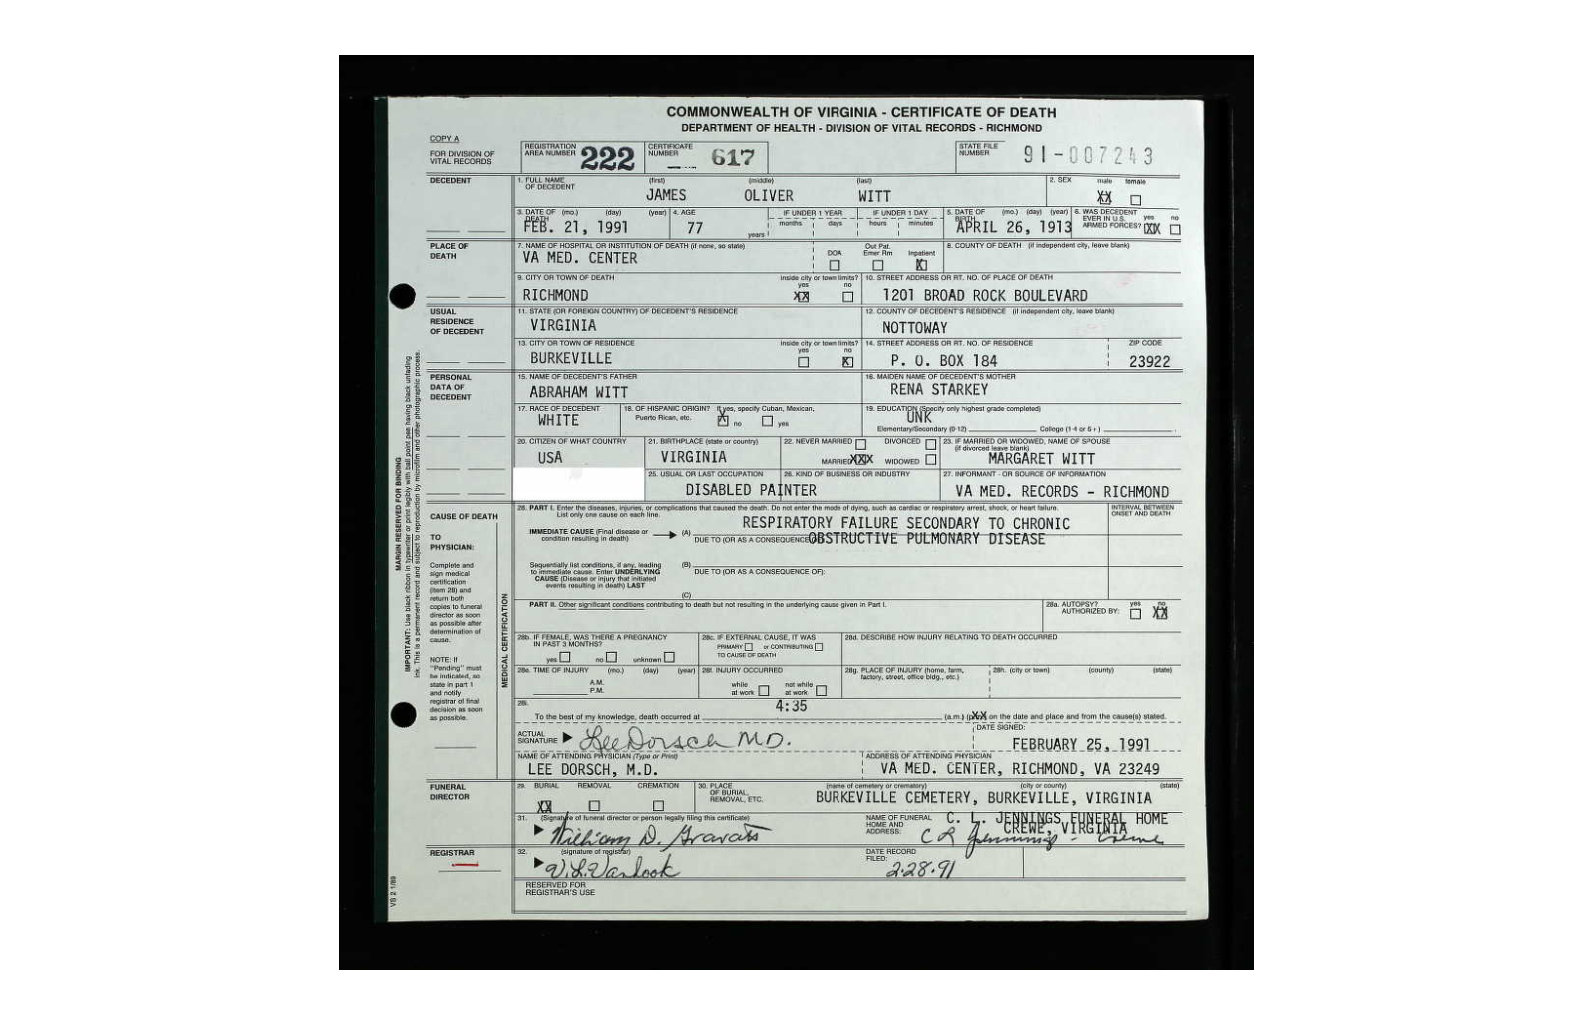 COMMONWEALTH OF VIRGINIA - CERTIFICATE OF DEATH
DEPARTMENT OF HEALTH - DIVISION OF VITAL RECORDS - RICHMOND
COPY A
FOR DIVISION OF VITAL RECORDS
REGISTRATION AREA NUMBER 222 CERTIFICATE NUMBER 617 STATE FILE NUMBER 91-007243
DECEDENT
1. FULL NAME OF DECEDENT (first) (middle) (last) 2. SEX male female
JAMES OLIVER WITT XX
3. DATE OF DEATH (mo.) (day) (year) 4. AGE IF UNDER 1 YEAR IF UNDER 1 DAY 5. DATE OF BIRTH (mo.) (day) (year) 6. WAS DECEDENT EVER IN U.S. ARMED FORCES? yes no
months days hours minutes
FEB. 21, 1991 77 years APRIL 26, 1913 XX
PLACE OF DEATH
7. NAME OF HOSPITAL OR INSTITUTION OF DEATH (if none, so state) DOA Out Pat. Emer Rm Inpatient 8. COUNTY OF DEATH (if independent city, leave blank)
VA MED. CENTER X
9. CITY OR TOWN OF DEATH inside city or town limits? yes no 10. STREET ADDRESS OR RT. NO. OF PLACE OF DEATH
RICHMOND XX 1201 BROAD ROCK BOULEVARD
USUAL RESIDENCE OF DECEDENT
11. STATE (OR FOREIGN COUNTRY) OF DECEDENT'S RESIDENCE 12. COUNTY OF DECEDENT'S RESIDENCE (if independent city, leave blank)
VIRGINIA NOTTOWAY
13. CITY OR TOWN OF RESIDENCE inside city or town limits? yes no 14. STREET ADDRESS OR RT. NO. OF RESIDENCE ZIP CODE
BURKEVILLE X P. O. BOX 184 23922
PERSONAL DATA OF DECEDENT
15. NAME OF DECEDENT'S FATHER 16. MAIDEN NAME OF DECEDENT'S MOTHER
ABRAHAM WITT RENA STARKEY
17. RACE OF DECEDENT 18. OF HISPANIC ORIGIN? If yes, specify Cuban, Mexican, Puerto Rican, etc. no yes 19. EDUCATION (Specify only highest grade completed)
WHITE X UNK
Elementary/Secondary (0-12) College (1-4 or 5+)
20. CITIZEN OF WHAT COUNTRY 21. BIRTHPLACE (state or country) 22. NEVER MARRIED DIVORCED 23. IF MARRIED OR WIDOWED, NAME OF SPOUSE (if divorced leave blank)
USA VIRGINIA MARRIED XXX WIDOWED MARGARET WITT
25. USUAL OR LAST OCCUPATION 26. KIND OF BUSINESS OR INDUSTRY 27. INFORMANT - OR SOURCE OF INFORMATION
DISABLED PAINTER VA MED. RECORDS - RICHMOND
MARGIN RESERVED FOR BINDING
IMPORTANT: Use black ribbon in typewriter or print legibly with ball point pen having black unfading
ink. This is a permanent record and subject to reproduction by microfilm and other photographic process.
CAUSE OF DEATH
28. PART I. Enter the diseases, injuries, or complications that caused the death. Do not enter the mode of dying, such as cardiac or respiratory arrest, shock, or heart failure. List only one cause on each line.
INTERVAL BETWEEN ONSET AND DEATH
RESPIRATORY FAILURE SECONDARY TO CHRONIC
IMMEDIATE CAUSE (Final disease or condition resulting in death) (A)
DUE TO (OR AS A CONSEQUENCE OBSTRUCTIVE PULMONARY DISEASE
TO PHYSICIAN:
Complete and sign medical certification (item 28) and return both copies to funeral director as soon as possible after determination of cause.
NOTE: If "Pending" must be indicated, so state in part 1 and notify registrar of final decision as soon as possible.
MEDICAL CERTIFICATION
Sequentially list conditions, if any, leading to immediate cause. Enter UNDERLYING CAUSE (Disease or injury that initiated events resulting in death) LAST
(B)
DUE TO (OR AS A CONSEQUENCE OF):
(C)
PART II. Other significant conditions contributing to death but not resulting in the underlying cause given in Part I. 28a. AUTOPSY? AUTHORIZED BY: yes no XX
28b. IF FEMALE, WAS THERE A PREGNANCY IN PAST 3 MONTHS? yes no unknown
28c. IF EXTERNAL CAUSE, IT WAS PRIMARY or CONTRIBUTING TO CAUSE OF DEATH
28d. DESCRIBE HOW INJURY RELATING TO DEATH OCCURRED
28e. TIME OF INJURY (mo.) (day) (year) A.M. P.M.
28f. INJURY OCCURRED while at work not while at work
28g. PLACE OF INJURY (home, farm, factory, street, office bldg., etc.)
28h. (city or town) (county) (state)
28i. 4:35
To the best of my knowledge, death occurred at (a.m.) XX on the date and place and from the cause(s) stated.
ACTUAL SIGNATURE Lee Dorsch M.D. DATE SIGNED: FEBRUARY 25, 1991
NAME OF ATTENDING PHYSICIAN (Type or Print) ADDRESS OF ATTENDING PHYSICIAN
LEE DORSCH, M.D. VA MED. CENTER, RICHMOND, VA 23249
FUNERAL DIRECTOR
29. BURIAL REMOVAL CREMATION 30. PLACE OF BURIAL, REMOVAL, ETC. (name of cemetery or crematory) (city or county) (state)
XX BURKEVILLE CEMETERY, BURKEVILLE, VIRGINIA
31. (Signature of funeral director or person legally filing this certificate) NAME OF FUNERAL HOME AND ADDRESS: C. L. JENNINGS FUNERAL HOME
CREWE, VIRGINIA
William D. Gravatt C L Jennings - Crewe
REGISTRAR
32. (signature of registrar) DATE RECORD FILED:
V.L. Vanhook 2-28-91
RESERVED FOR REGISTRAR'S USE
VS 2 1/89